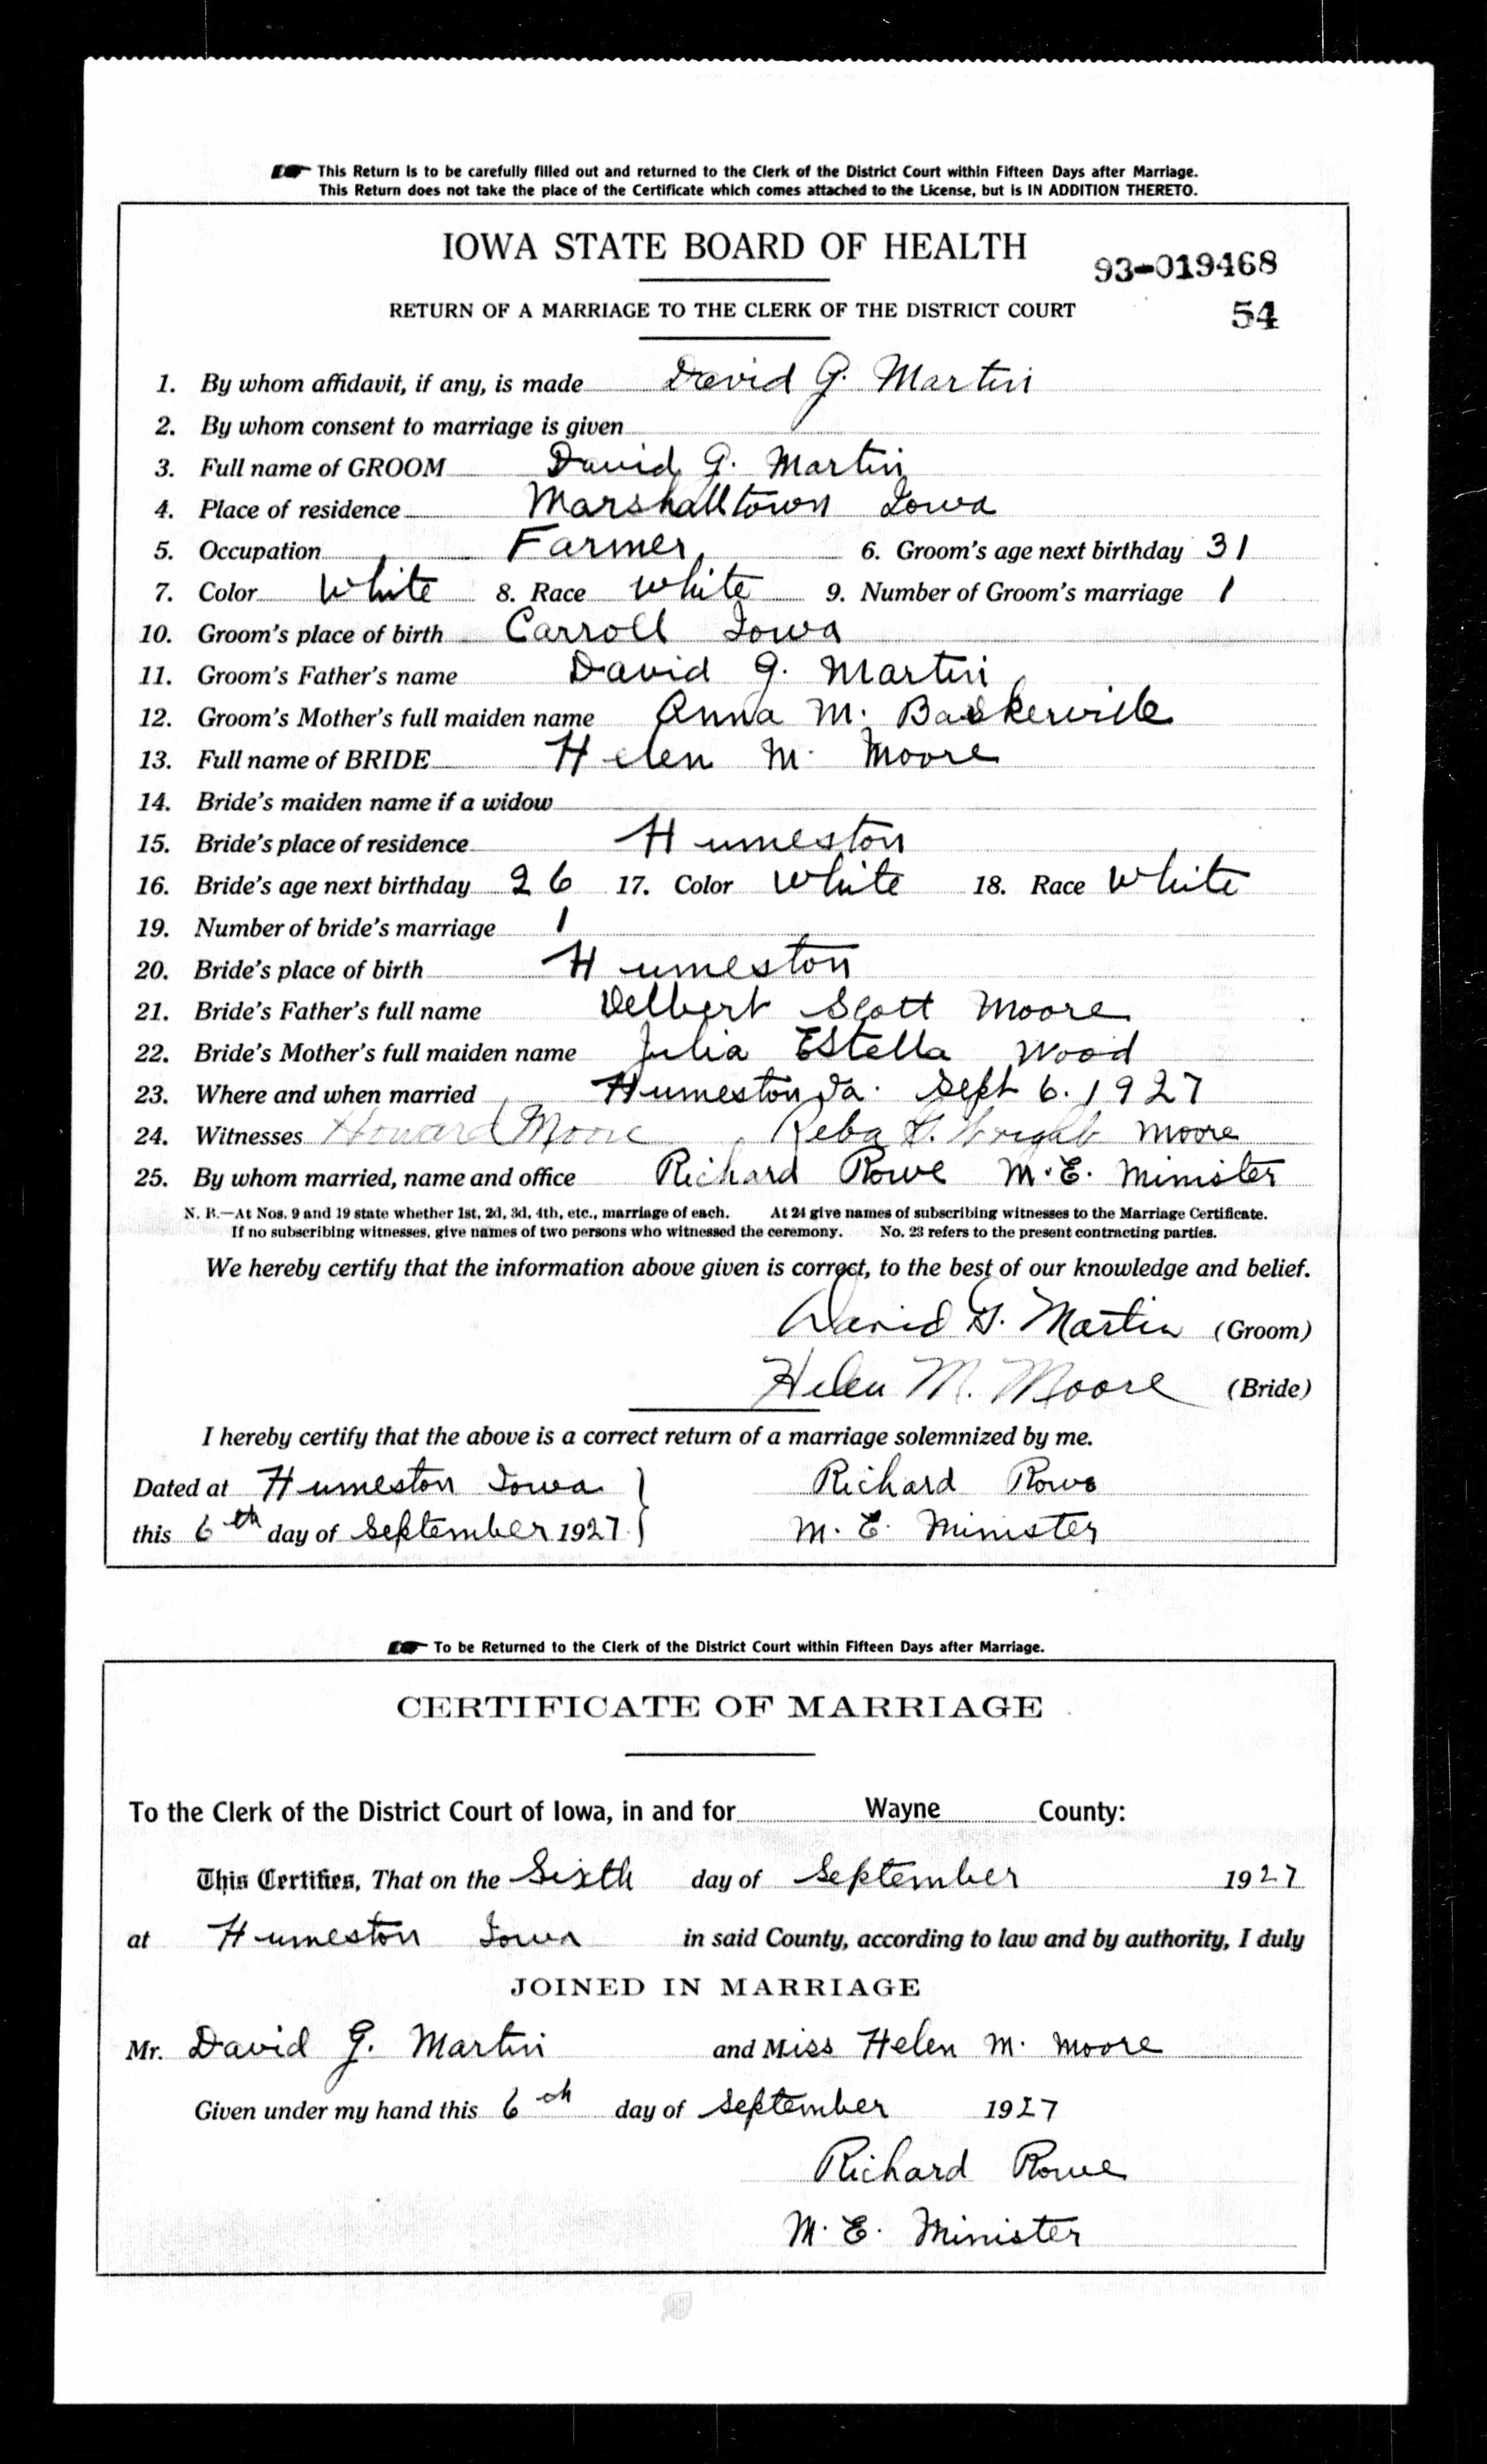 This Return is to be carefully filled out and returned to the Clerk of the District Court within Fifteen Days after Marriage.
This Return does not take the place of the Certificate which comes attached to the License, but is IN ADDITION THERETO.
IOWA STATE BOARD OF HEALTH
93-019468
RETURN OF A MARRIAGE TO THE CLERK OF THE DISTRICT COURT
54
1. By whom affidavit, if any, is made David G. Martin
2. By whom consent to marriage is given
3. Full name of GROOM David G. Martin
4. Place of residence Marshalltown Iowa
5. Occupation Farmer 6. Groom's age next birthday 31
7. Color White 8. Race White 9. Number of Groom's marriage 1
10. Groom's place of birth Carroll Iowa
11. Groom's Father's name David G. Martin
12. Groom's Mother's full maiden name Anna M. Baskerville
13. Full name of BRIDE Helen M. Moore
14. Bride's maiden name if a widow
15. Bride's place of residence Humeston
16. Bride's age next birthday 26 17. Color White 18. Race White
19. Number of bride's marriage 1
20. Bride's place of birth Humeston
21. Bride's Father's full name Delbert Scott Moore
22. Bride's Mother's full maiden name Julia Estella Wood
23. Where and when married Humeston Ia. Sept 6. 1927
24. Witnesses Howard Moore Reba Wright Moore
25. By whom married, name and office Richard Rowe M.E. Minister
N. B.—At Nos. 9 and 19 state whether 1st, 2d, 3d, 4th, etc., marriage of each. At 24 give names of subscribing witnesses to the Marriage Certificate.
If no subscribing witnesses, give names of two persons who witnessed the ceremony. No. 23 refers to the present contracting parties.
We hereby certify that the information above given is correct, to the best of our knowledge and belief.
David G. Martin (Groom)
Helen M. Moore (Bride)
I hereby certify that the above is a correct return of a marriage solemnized by me.
Dated at Humeston Iowa } Richard Rowe
this 6th day of September 1927 } M. E. Minister
To be Returned to the Clerk of the District Court within Fifteen Days after Marriage.
CERTIFICATE OF MARRIAGE
To the Clerk of the District Court of Iowa, in and for Wayne County:
This Certifies, That on the Sixth day of September 1927
at Humeston Iowa in said County, according to law and by authority, I duly
JOINED IN MARRIAGE
Mr. David G. Martin and Miss Helen M. Moore
Given under my hand this 6th day of September 1927
Richard Rowe
M. E. Minister